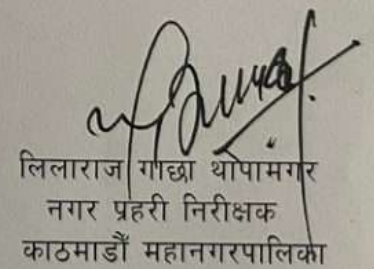 लिलाराज गाछा थापामगर
नगर प्रहरी निरीक्षक
काठमाडौं महानगरपालिका